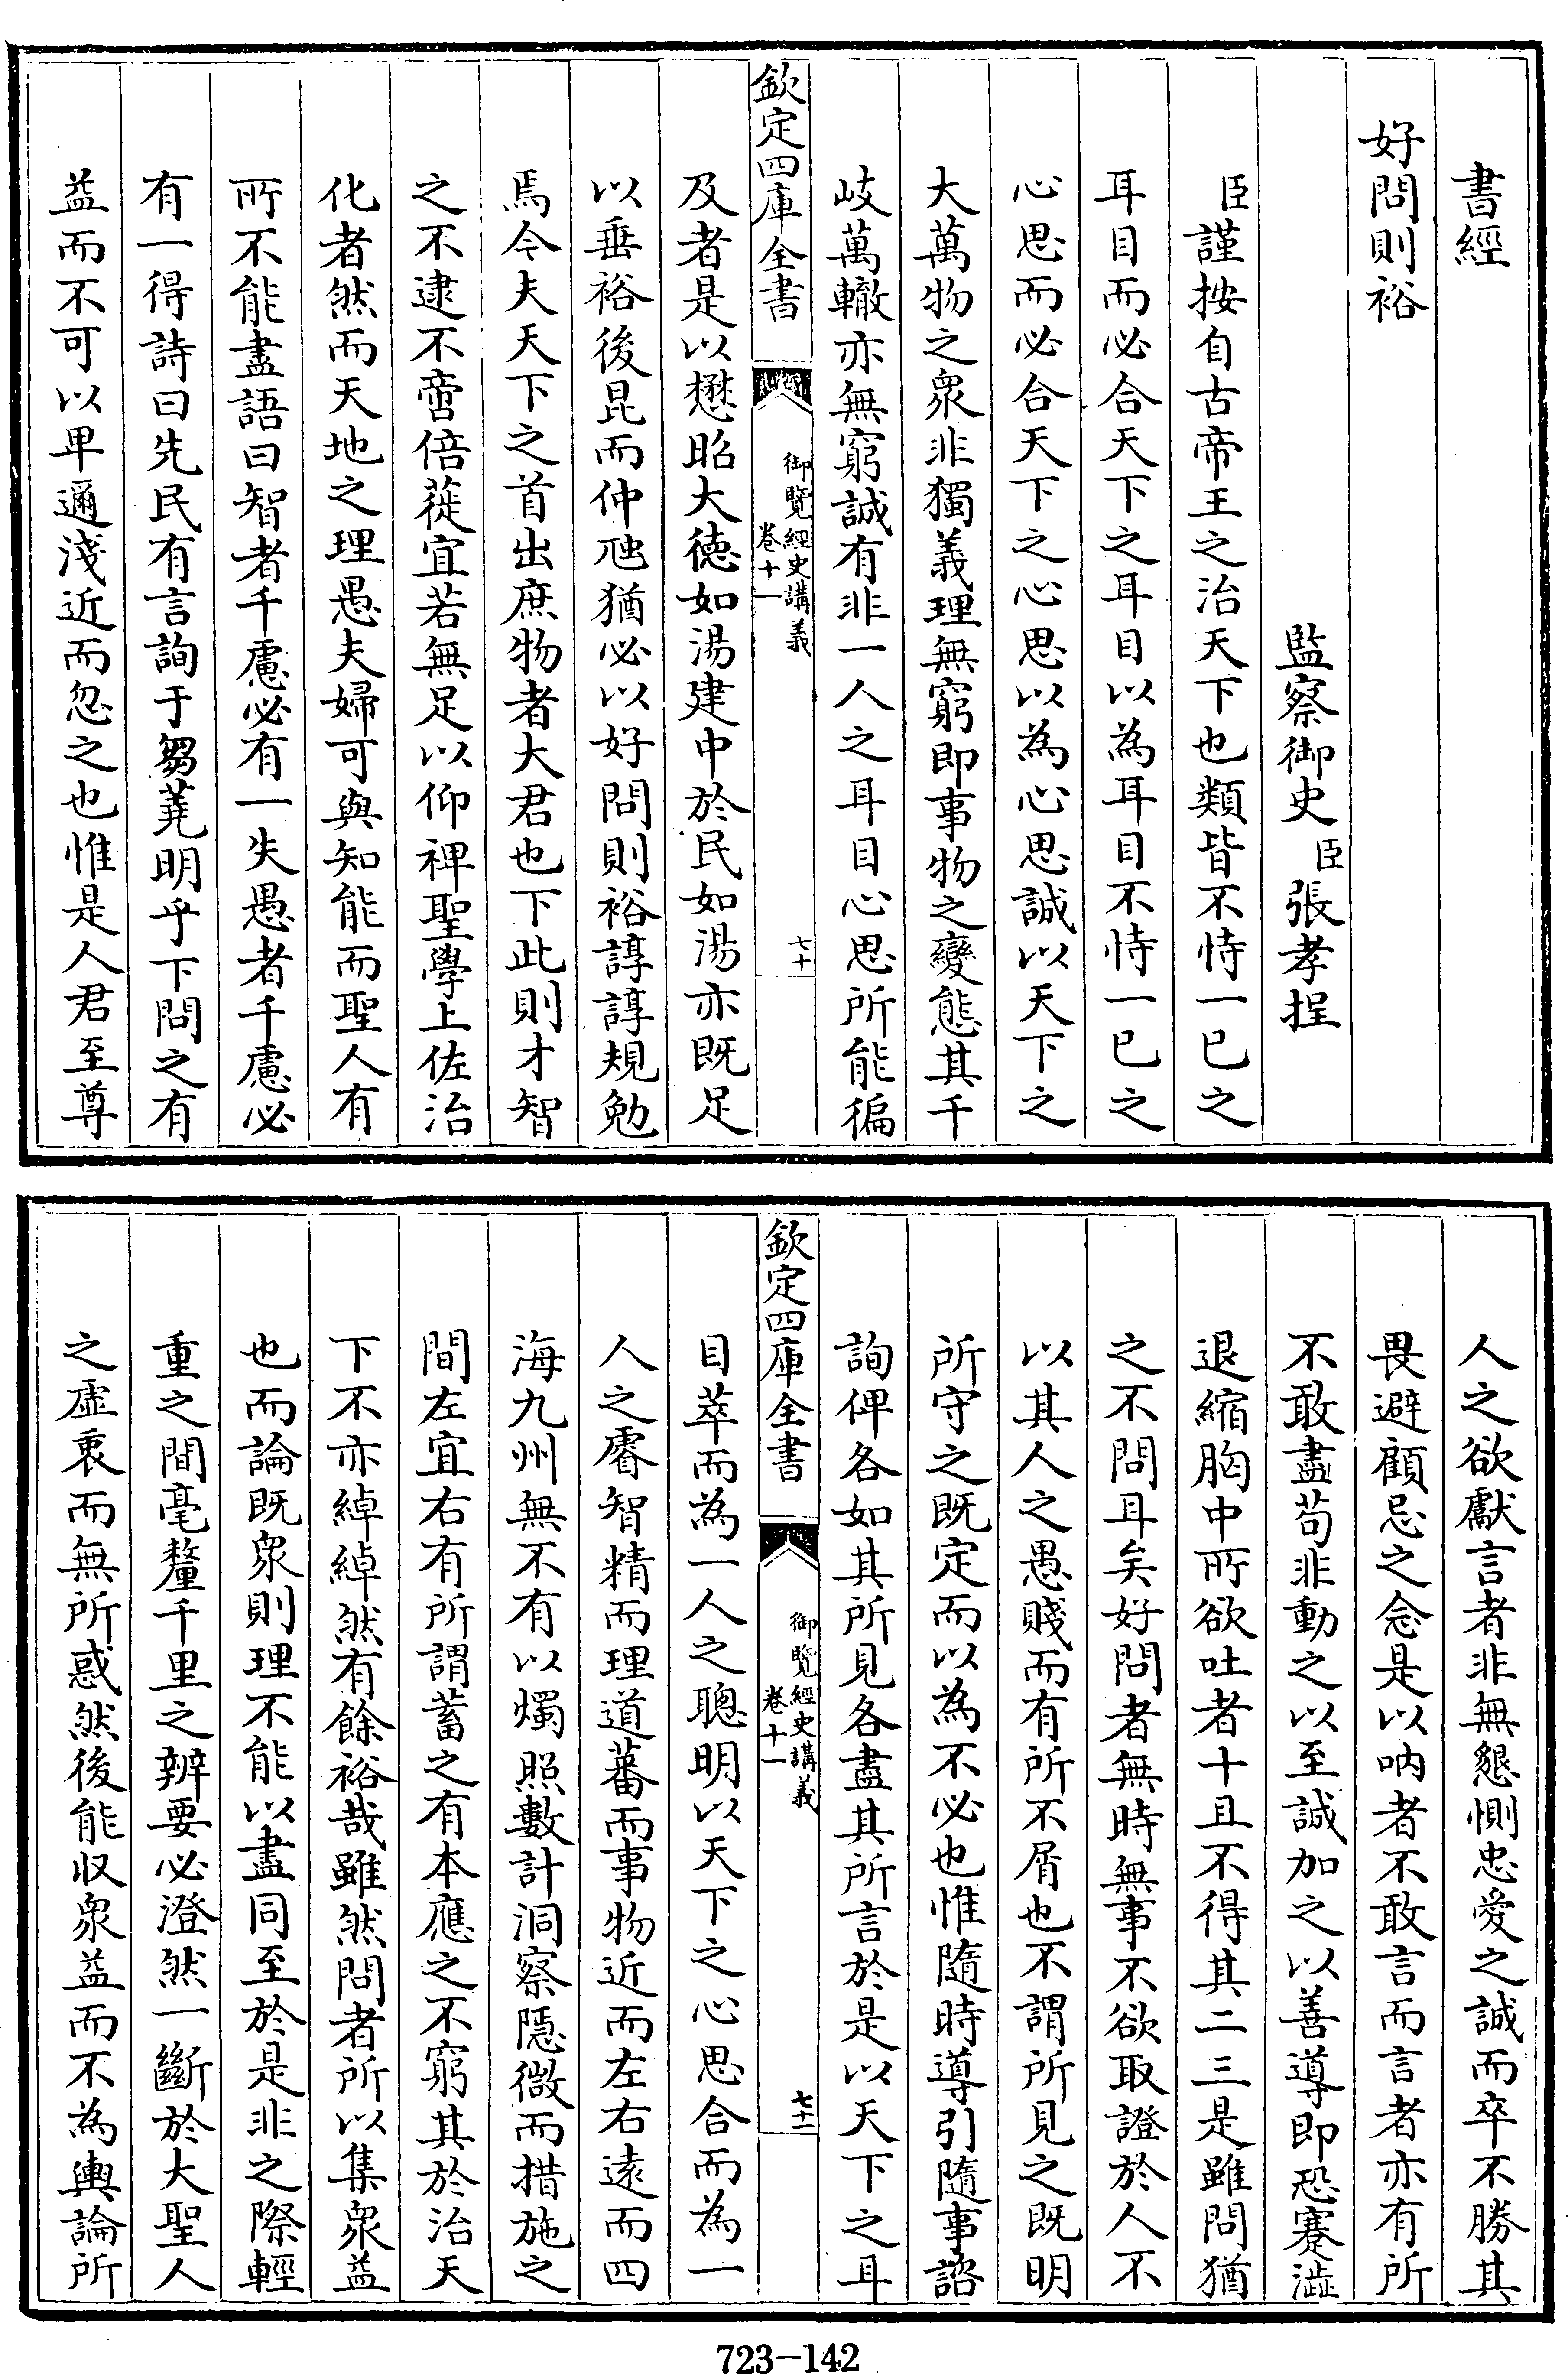 書經
好問則裕
監察御史臣張孝捏
臣謹按自古帝王之治天下也類皆不恃一已之
耳目而必合天下之耳目以為耳目不恃一已之
心思而必合天下之心思以為心思誠以天下之
大萬物之衆非獨義理無窮即事物之變態其千
岐萬轍亦無窮誠有非一人之耳目心思所能徧
欽定四庫全書
御覽經史講義
卷十一
七十
及者是以懋昭大德如湯建中於民如湯亦既足
以垂裕後昆而仲虺猶必以好問則裕諄諄規勉
焉今夫天下之首出庶物者大君也下此則才智
之不逮不啻倍蓰宜若無足以仰裨聖學上佐治
化者然而天地之理愚夫婦可與知能而聖人有
所不能盡語曰智者千慮必有一失愚者千慮必
有一得詩曰先民有言詢于芻蕘明乎下問之有
益而不可以卑邇淺近而忽之也惟是人君至尊
人之欲獻言者非無懇惻忠愛之誠而卒不勝其
畏避顧忌之念是以吶者不敢言而言者亦有所
不敢盡苟非動之以至誠加之以善導即恐蹇澁
退縮胸中所欲吐者十且不得其二三是雖問猶
之不問耳矣好問者無時無事不欲取證於人不
以其人之愚賤而有所不屑也不謂所見之既明
所守之既定而以為不必也惟隨時導引隨事諮
詢俾各如其所見各盡其所言於是以天下之耳
欽定四庫全書
御覽經史講義
卷十一
七十一
目萃而為一人之聰明以天下之心思合而為一
人之睿智精而理道蕃而事物近而左右遠而四
海九州無不有以燭照數計洞察隱微而措施之
間左宜右有所謂蓄之有本應之不窮其於治天
下不亦綽綽然有餘裕哉雖然問者所以集衆益
也而論既衆則理不能以盡同至於是非之際輕
重之間毫釐千里之辨要必澄然一斷於大聖人
之虛衷而無所惑然後能収衆益而不為輿論所
723-142